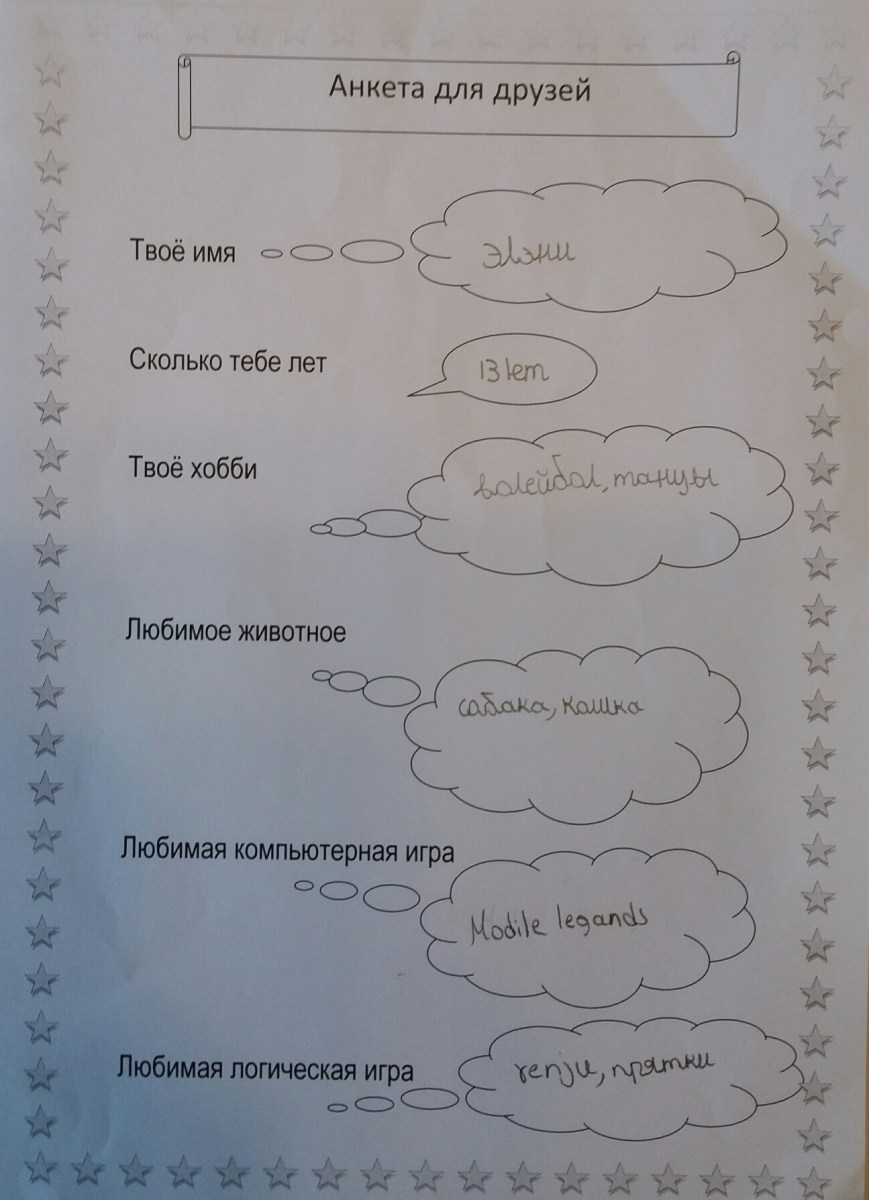 Анкета для друзей
Твоё имя
Элэни
Сколько тебе лет
13 лет
Твоё хобби
волейбол, танцы
Любимое животное
сабака, кошка
Любимая компьютерная игра
Modile legands
Любимая логическая игра
renju, прятки